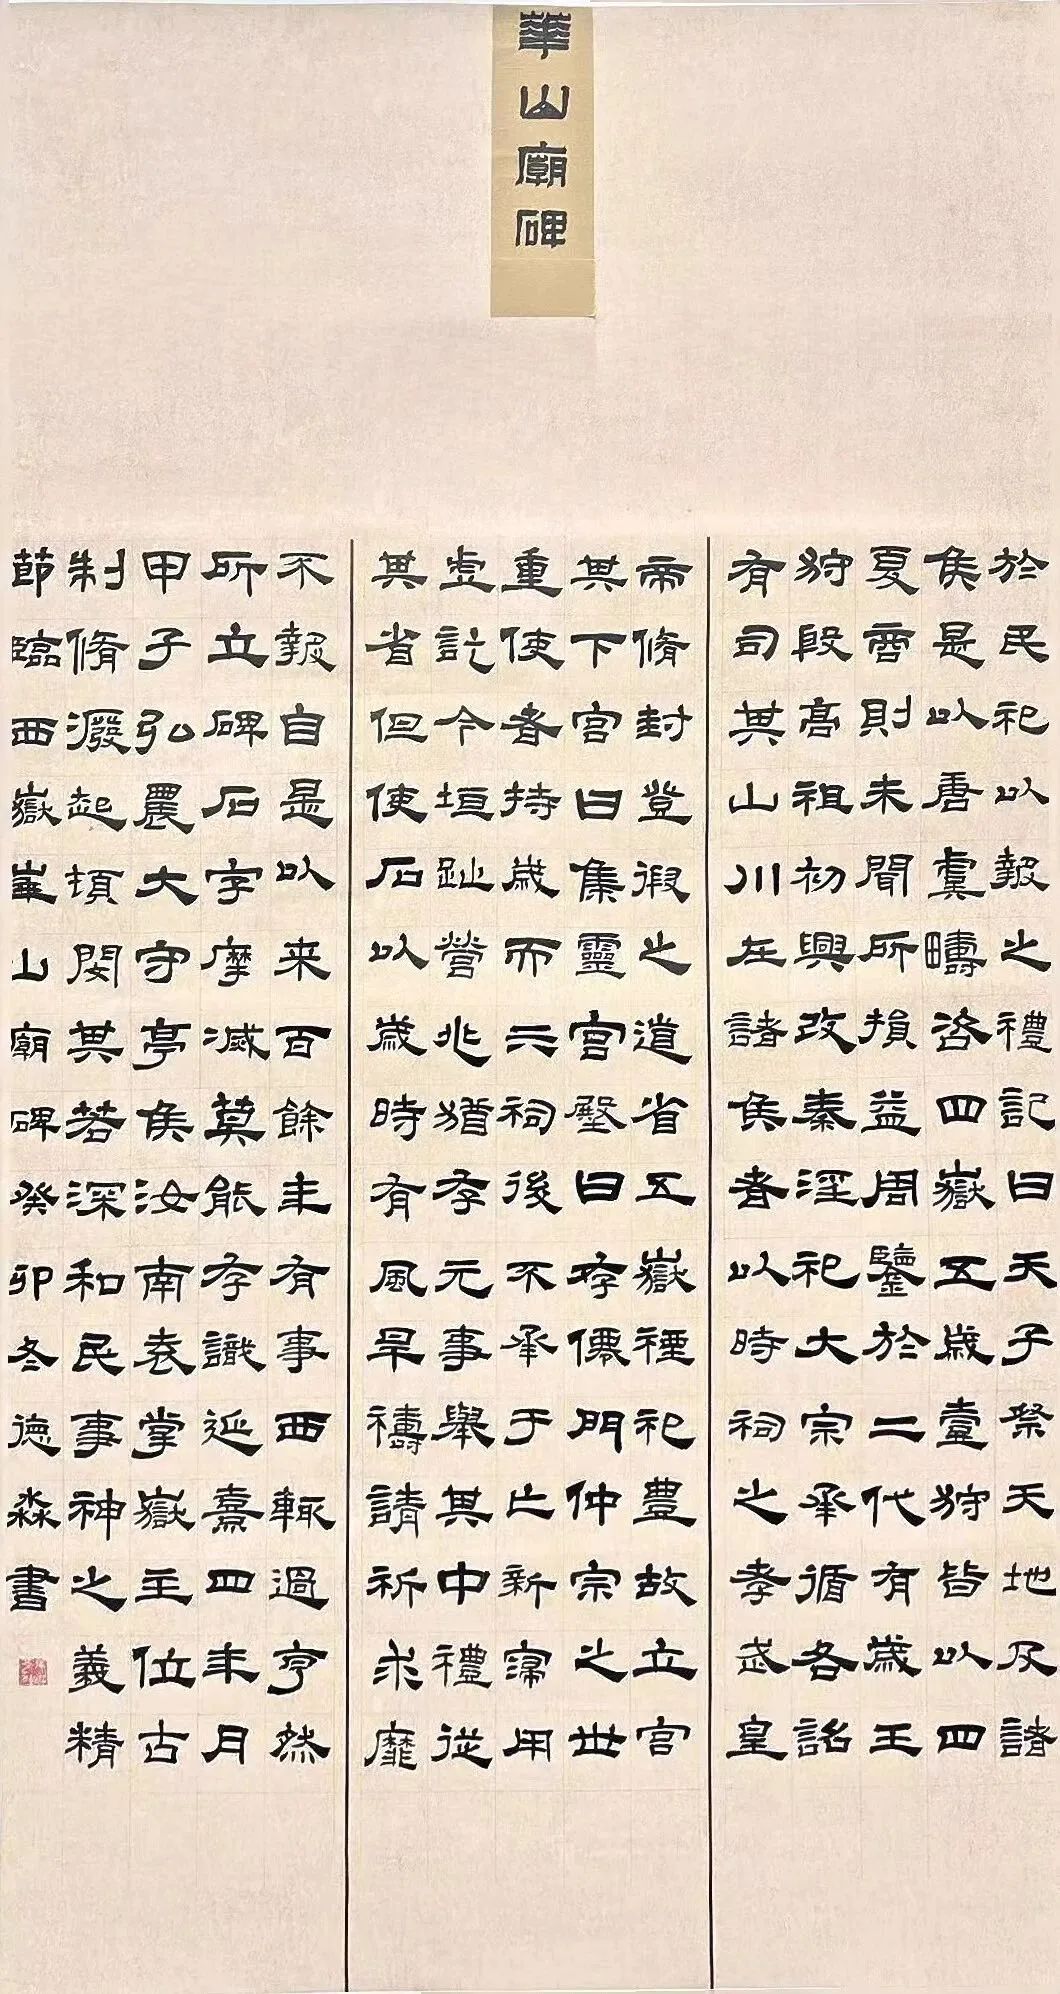 華山廟碑
於民祀以報之禮記曰天子祭天地及諸
侯是以唐虞疇咨四嶽五歲壹狩皆以四
夏商則未聞所損益周鑒於二代有歲王
狩殷高祖初興改秦淫祀大宗承循各詔
有司其山川在諸侯者以時祠之孝武皇
帝脩封登假之道省五嶽禋祀豊故立宮
其下宮曰集靈宮壂曰存僊門仲宗之世
重使者持歲而六祠後不承于亡新寖用
虛訖今垣趾營兆猶存元事舉其中禮從
其省但使石以歲時有風旱禱請祈求靡
不報自是以来百餘年有事西輒過亨然
所立碑石字摩滅莫能存識延熹四年月
甲子弘農大守亭侯汝南袁掌嶽主位古
制脩癈起頓閔其若深和民事神之義精
節臨西嶽華山廟碑癸卯冬德淼書